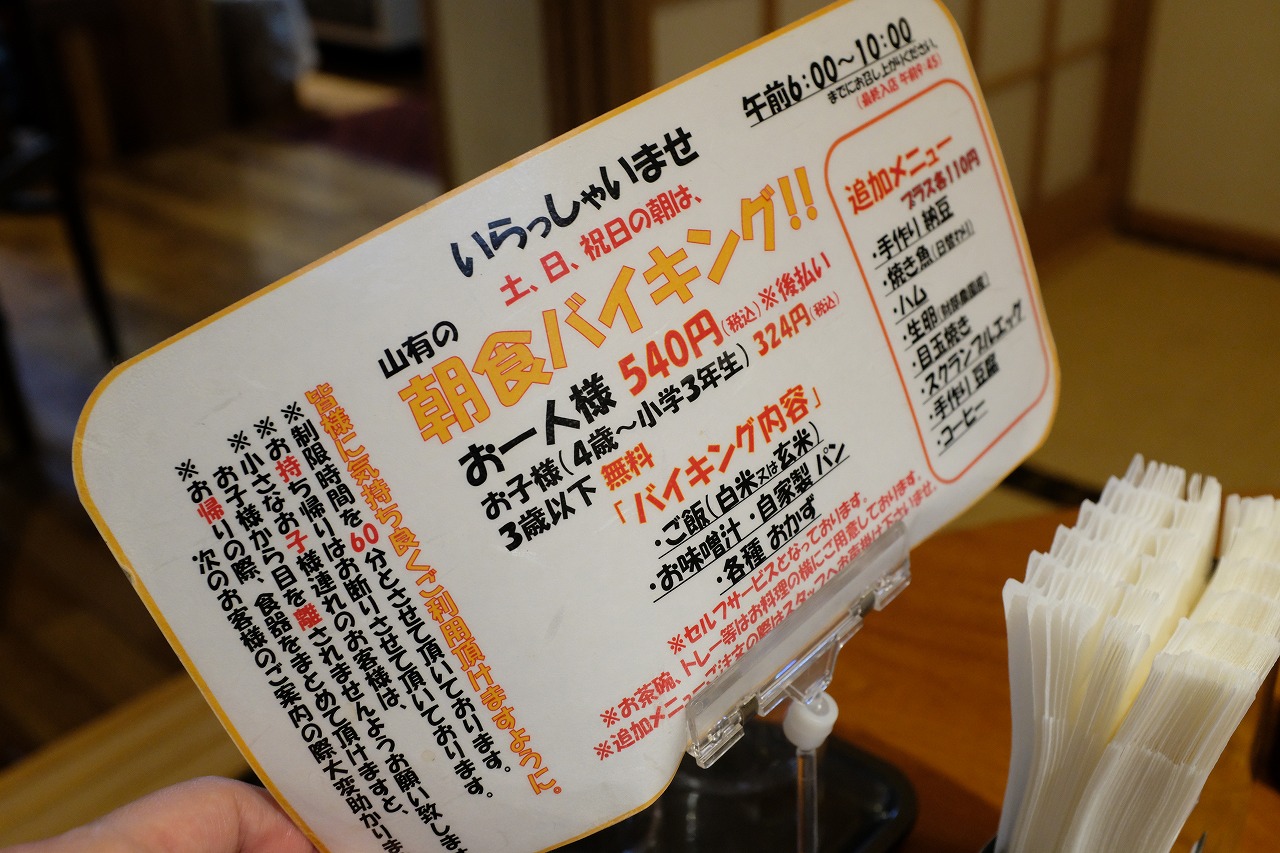 午前6:00～10:00
までにお召し上がりください。
(最終入店 午前9:45)
いらっしゃいませ
土、日、祝日の朝は、
山有の
朝食バイキング!!
お一人様 540円(税込)※後払い
お子様(4歳～小学3年生) 324円(税込)
3歳以下 無料
「バイキング内容」
・ご飯(白米又は玄米)
・お味噌汁・自家製 パン
・各種 おかず
※セルフサービスとなっております。
※お茶碗、トレー等はお料理の横にご用意しております。
※追加メニューご注文の際はスタッフへお声掛け下さいませ。
追加メニュー
プラス各110円
・手作り納豆
・焼き魚(日替わり)
・ハム
・生卵(財部農園産)
・目玉焼き
・スクランブルエッグ
・手作り豆腐
・コーヒー
皆様に気持ち良くご利用頂けますように。
※制限時間を60分とさせて頂いております。
※お持ち帰りはお断りさせて頂いております。
※小さなお子様連れのお客様は、
お子様から目を離されませんようお願い致しま
※お帰りの際、食器をまとめて頂けますと、
次のお客様のご案内の際大変助かりま